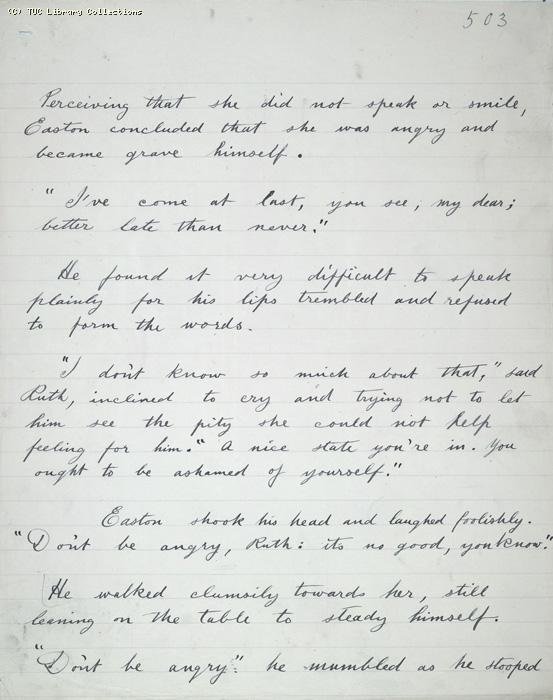 (C) TUC Library Collections
503
Perceiving that she did not speak or smile,
Easton concluded that she was angry and
became grave himself.
"I've come at last, you see, my dear;
better late than never."
He found it very difficult to speak
plainly for his lips trembled and refused
to form the words.
"I don't know so much about that," said
Ruth, inclined to cry and trying not to let
him see the pity she could not help
feeling for him. "A nice state you're in. You
ought to be ashamed of yourself."
Easton shook his head and laughed foolishly.
"Don't be angry, Ruth: its no good, you know."
He walked clumsily towards her, still
leaning on the table to steady himself.
"Don't be angry": he mumbled as he stooped